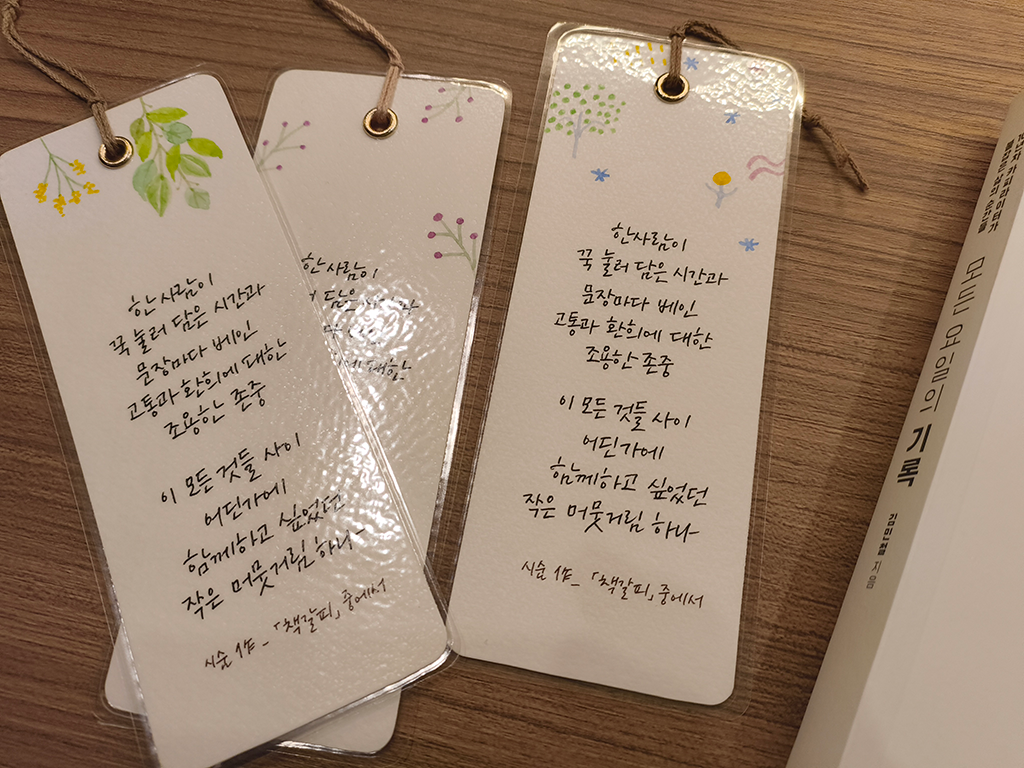 한 사람이
꾹 눌러 담은 시간과
문장마다 베인
고통과 환희에 대한
조용한 존중
이 모든 것들 사이
어딘가에
함께하고 싶었던
작은 머뭇거림 하나
시술 作_「책갈피」중에서
한 사람이
담은
대한
한 사람이
꾹 눌러 담은 시간과
문장마다 베인
고통과 환희에 대한
조용한 존중
이 모든 것들 사이
어딘가에
함께하고 싶었던
작은 머뭇거림 하나
시술 作_「책갈피」중에서
모든 요일의 기록
김민철 지음